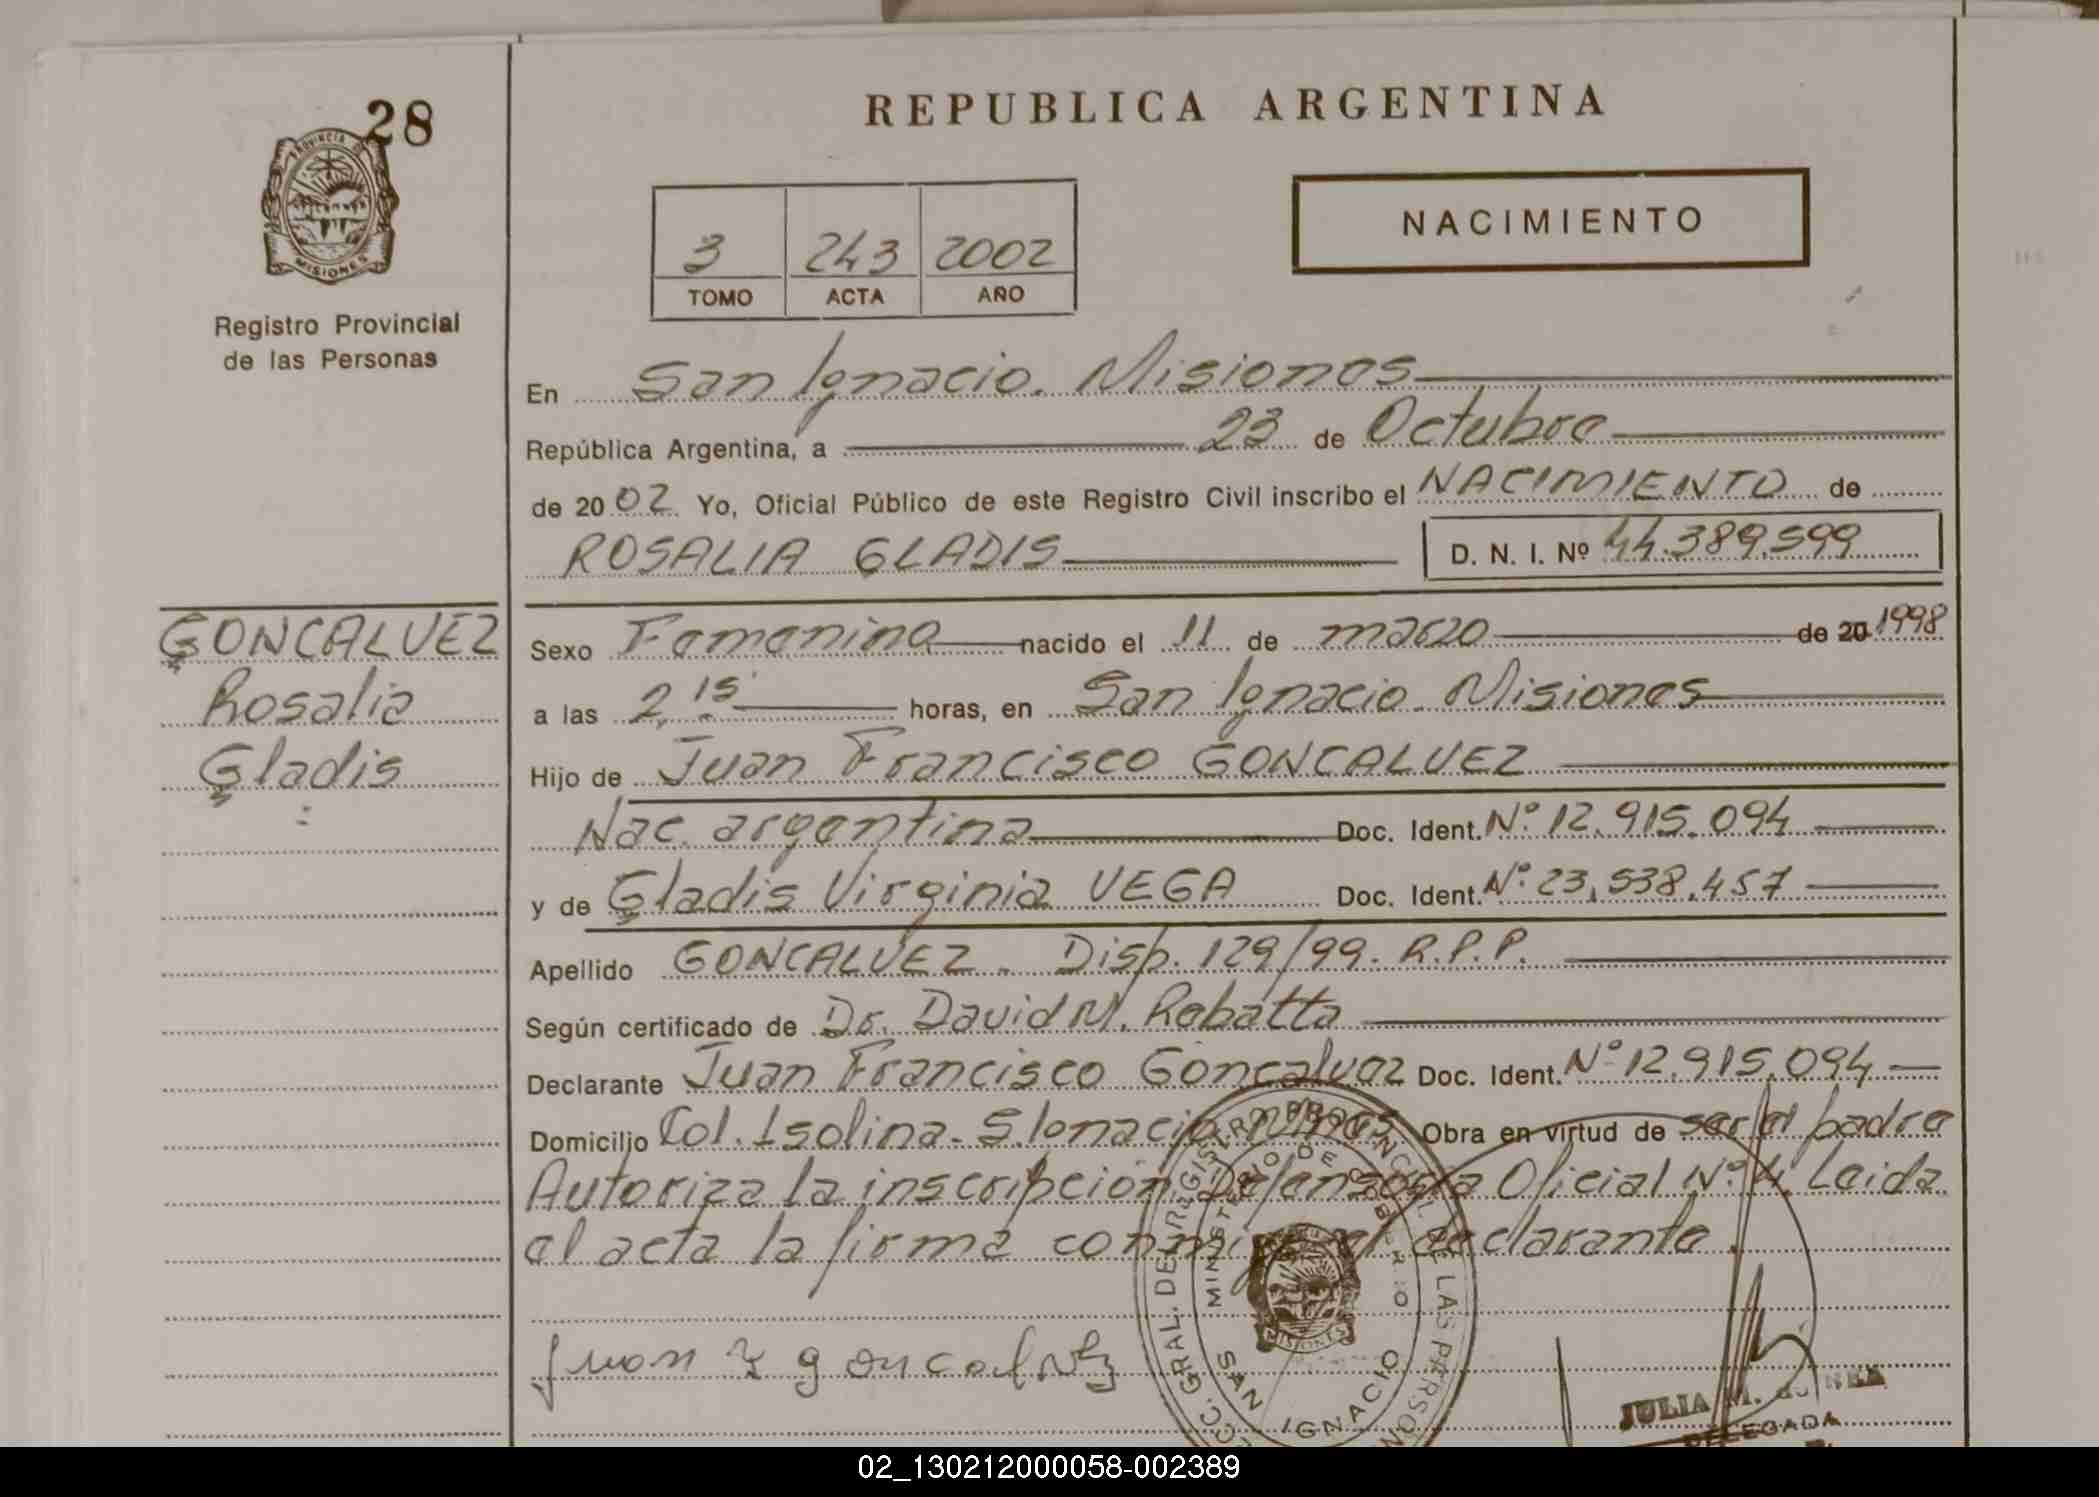 28
PROVINCIA DE
MISIONES
Registro Provincial
de las Personas
REPUBLICA ARGENTINA
NACIMIENTO
3 243 2002
TOMO ACTA AÑO
En San Ignacio. Misiones
República Argentina, a 23 de Octubre
de 2002 Yo, Oficial Público de este Registro Civil inscribo el NACIMIENTO de
ROSALIA GLADIS D. N. I. Nº 44.389.599
GONCALVEZ
Rosalia
Gladis
Sexo Femenino nacido el 11 de marzo de 20 1998
a las 2,15 horas, en San Ignacio. Misiones
Hijo de Juan Francisco GONCALVEZ
Nac. argentina Doc. Ident. Nº 12.915.094
y de Gladis Virginia VEGA Doc. Ident. Nº 23.538.457
Apellido GONCALVEZ. Disp. 129/99. R.P.P.
Según certificado de Dr. David M. Rabatta
Declarante Juan Francisco Goncalvez Doc. Ident. Nº 12.915.094
Domicilio Col. Isolina - S. Ignacio Obra en virtud de ser el padre
Autoriza la inscripción Defensoría Oficial Nº 4. Leida
el acta la firma conmigo el declarante.
Juan F goncalvez
MINISTERIO DE GOBIERNO
MISIONES
SAN IGNACIO
JULIA M.
DELEGADA
02_130212000058-002389